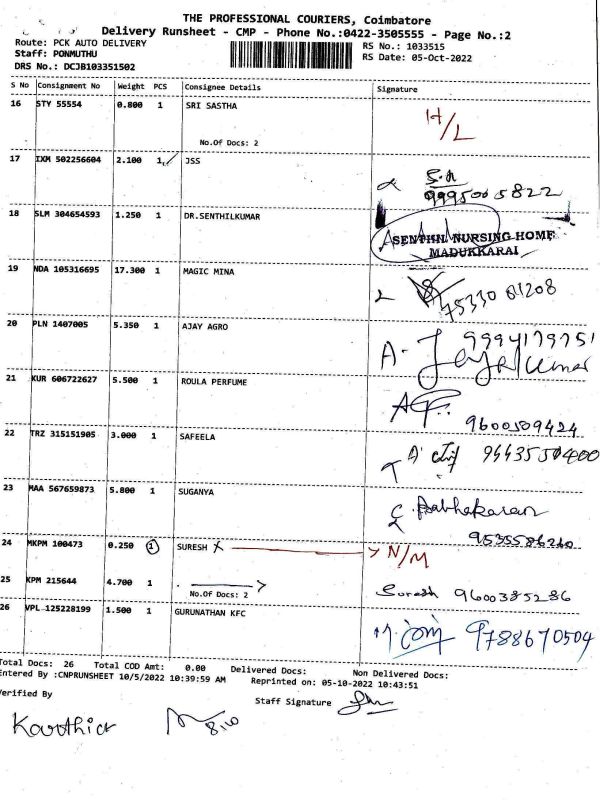 THE PROFESSIONAL COURIERS, Coimbatore
Delivery Runsheet - CMP - Phone No.:0422-3505555 - Page No.:2
Route: PCK AUTO DELIVERY
Staff: PONMUTHU
DRS No.: DCJB103351502
RS No.: 1033515
RS Date: 05-Oct-2022
S No Consignment No Weight PCS Consignee Details Signature
16 STY 55554 0.800 1 SRI SASTHA
No.Of Docs: 2
H/L
17 IXM 502256604 2.100 1 JSS
9995005822
18 SLM 304654593 1.250 1 DR.SENTHILKUMAR
SENTHIL NURSING HOME
MADUKKARAI
19 NDA 105316695 17.300 1 MAGIC MINA
75330 61208
20 PLN 1407005 5.350 1 AJAY AGRO
9994179751
21 KUR 606722627 5.500 1 ROULA PERFUME
9600509424
22 TRZ 315151905 3.000 1 SAFEELA
23 MAA 567659873 5.800 1 SUGANYA
Prabhakaran
24 MKPM 100473 0.250 1 SURESH X N/M
25 KPM 215644 4.700 1
No.Of Docs: 2
Suresh 9600385286
26 VPL 125228199 1.500 1 GURUNATHAN KFC
9788670504
Total Docs: 26 Total COD Amt: 0.00 Delivered Docs: Non Delivered Docs:
Entered By :CNPRUNSHEET 10/5/2022 10:39:59 AM Reprinted on: 05-10-2022 10:43:51
Verified By
Staff Signature
Karthick
8:10